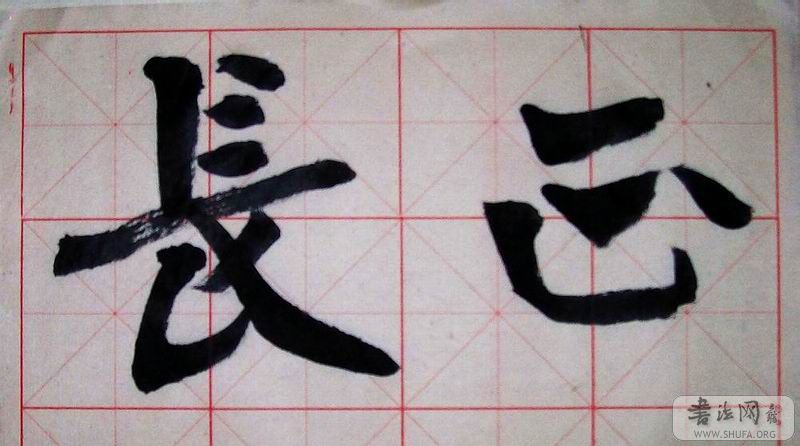 長
書法网
WWW.SHUFA.ORG